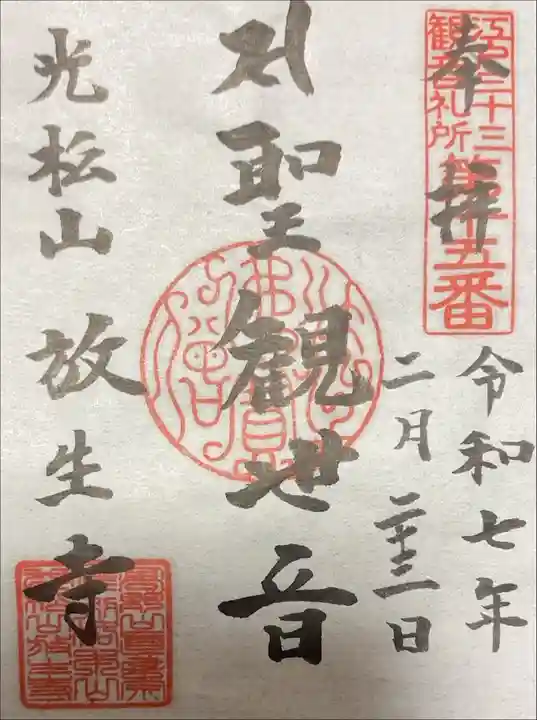 奉拝
江戸三十三
観音札所
第十五番
令和七年
二月二十三日
聖観世音
光松山放生寺